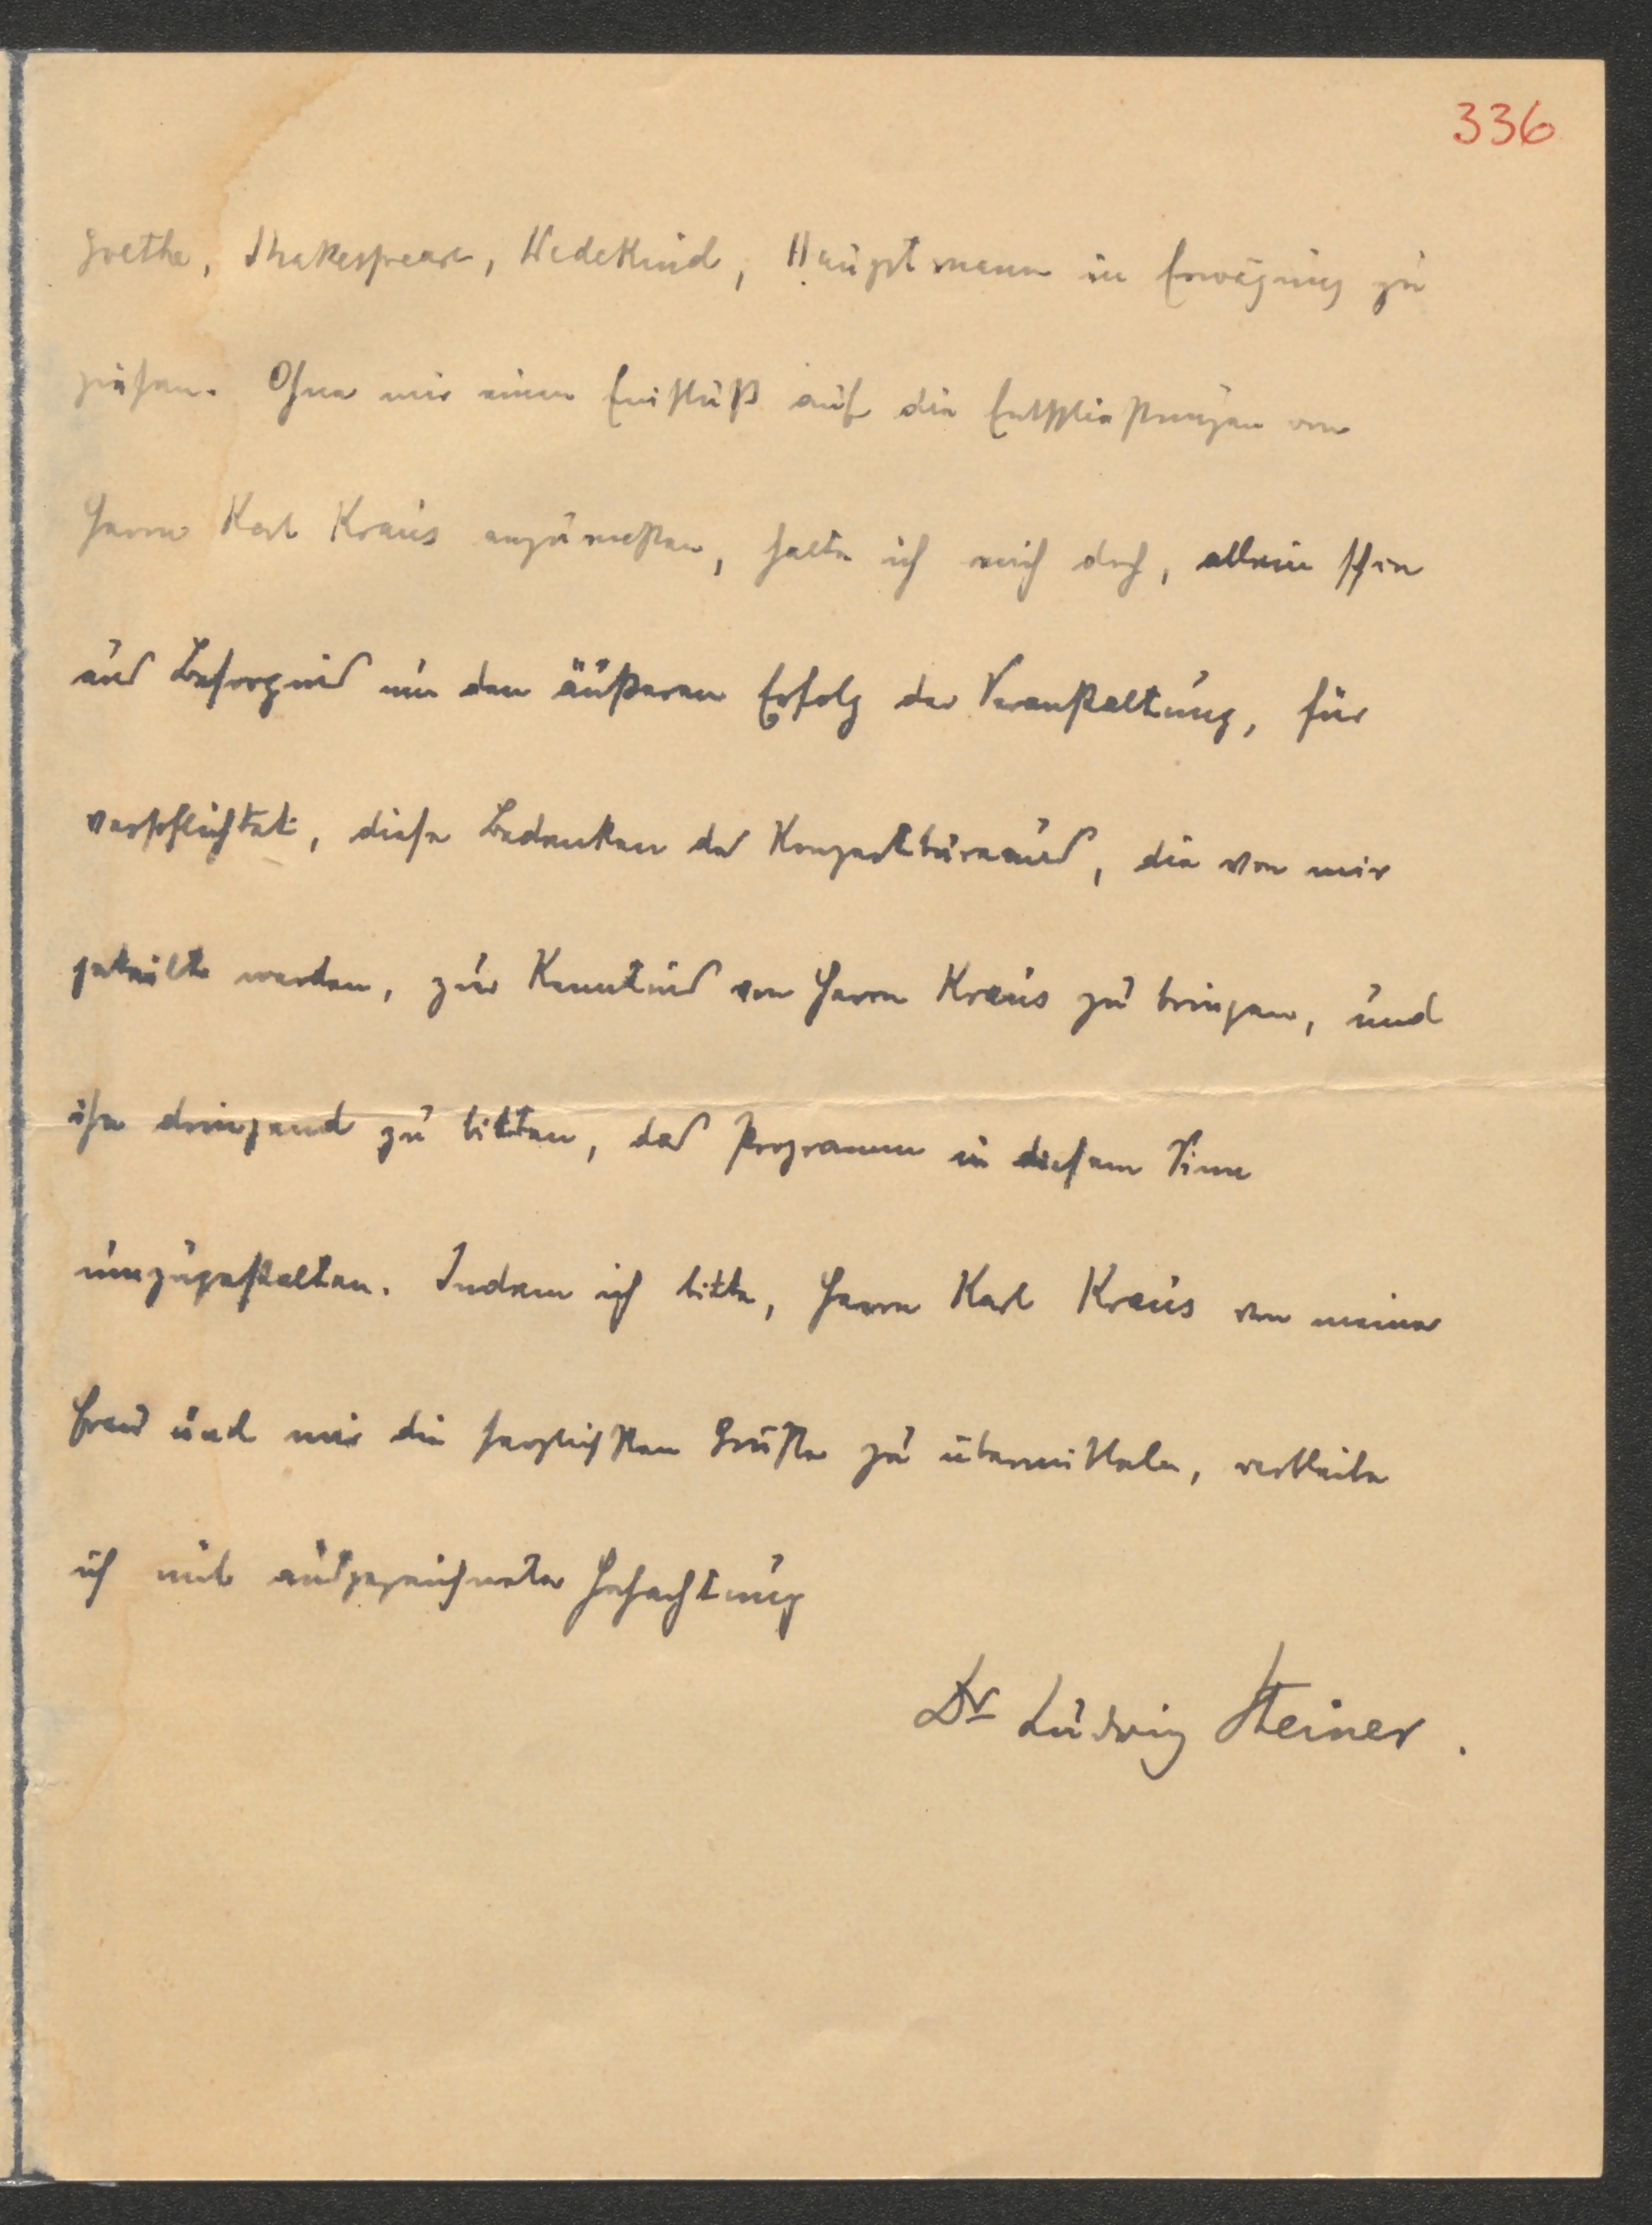 336
Goethe, Shakespeare, Wedekind, Hauptmann in Erwägung zu
ziehen. Ohne mir einen Einfluß auf die Entschließungen von
Herrn Karl Kraus anzumaßen, halte ich mich doch, allein schon
aus Besorgnis um den äußeren Erfolg der Veranstaltung, für
verpflichtet, diese Bedenken des Konzertbureaus, die von mir
geteilt werden, zur Kenntnis von Herrn Kraus zu bringen, und
ihn dringend zu bitten, das Programm in diesem Sinne
umzugestalten. Indem ich bitte, Herrn Karl Kraus von meiner
Frau und mir die herzlichsten Grüße zu übermitteln, verbleibe
ich mit ausgezeichneter Hochachtung
Dr Ludwig Steiner.